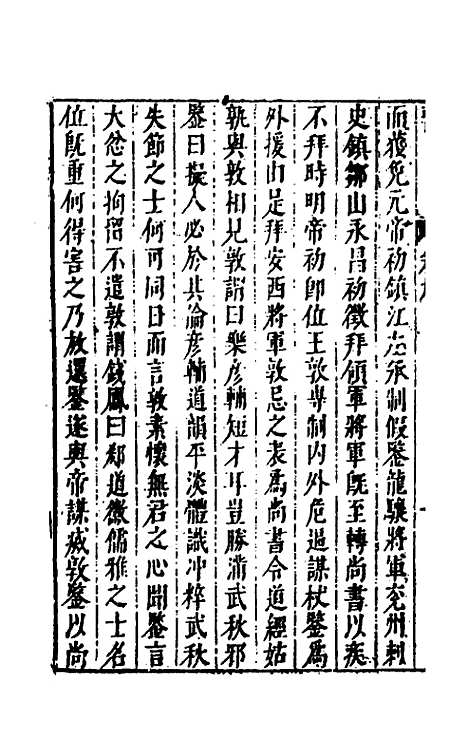 而獲免元帝初鎮江左承制假鑒龍驤將軍兖州刺
史鎮鄒山永昌初徵拜領軍將軍既至轉尚書以疾
不拜時明帝初即位王敦專制内外危逼謀杖鑒爲
外援由是拜安西將軍敦忌之表爲尚書令道經姑
孰與敦相見敦謂曰樂彦輔短才耳豈勝滿武秋邪
鑒曰擬人必於其倫彦輔道韻平淡體識冲粹武秋
失節之士何可同日而言敦素懷無君之心聞鑒言
大忿之拘留不遣敦謂錢鳳曰郄道徽儒雅之士名
位既重何得害之乃放還鑒遂與帝謀滅敦鑒以尚